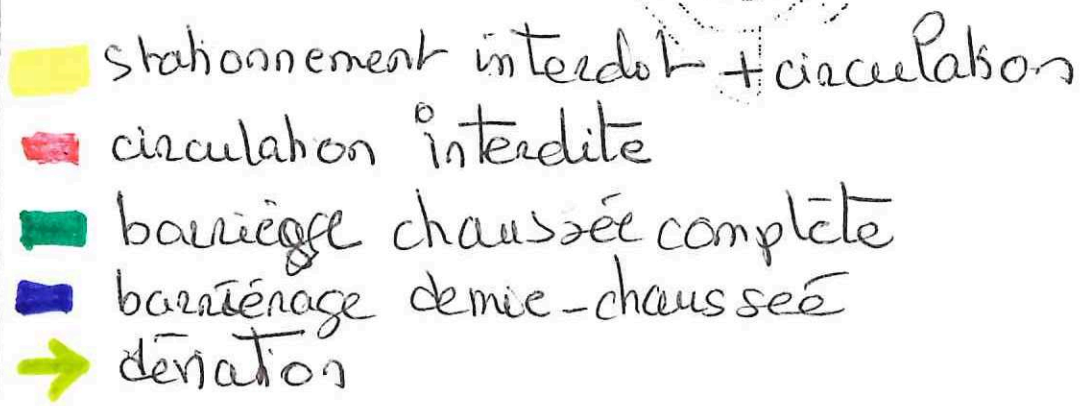 stationnement interdit + circulation
circulation interdite
barriérage chaussée complète
barriérage demie-chausseé
déviation